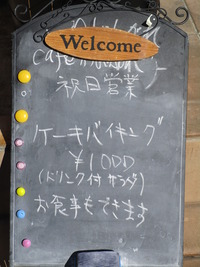 Welcome
cafe
祝日営業
ケーキバイキング
¥1000
(ドリンク付 サラダ)
お食事もできます